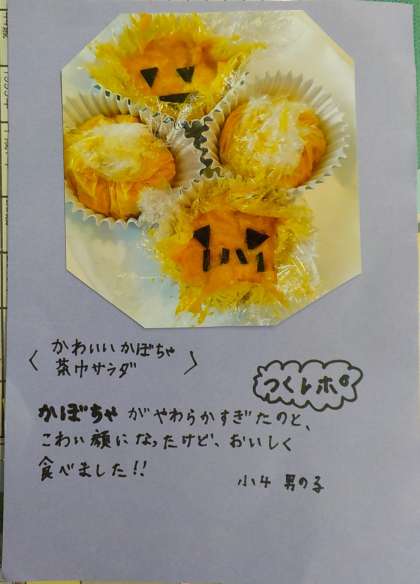 かわいいかぼちゃ
茶巾サラダ
つくレポ
かぼちゃがやわらかすぎたのと、
こわい顔になったけど、おいしく
食べました!!
小4 男の子